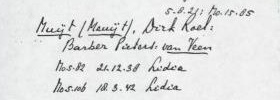 5.8.21: No.15.05
Muijt (Manijt), Dirk Roel:
Barber Pieters van Veen
No5.82 21.12.38 Lidia
No5.106 18.3.42 Lidia